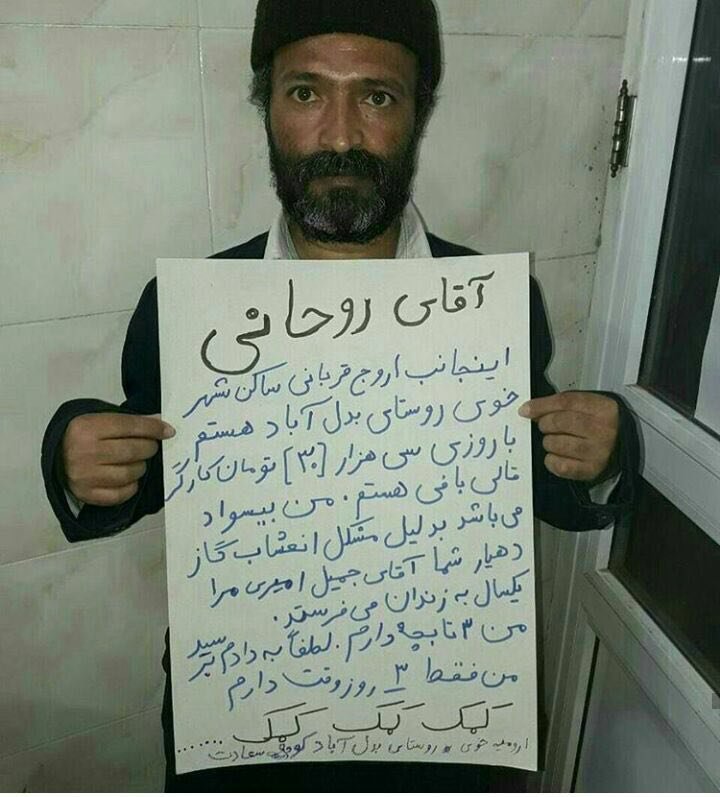 آقای روحانی
اینجانب اروج قربانی ساکن شهر
خوی روستای بدل آباد هستم
با روزی سی هزار [۳۰] تومان کارگر
قالی بافی هستم. من بیسواد
می باشد بدلیل مشکل انعشاب گاز
دهیار شما آقای جمیل امیری مرا
یکسال به زندان می فرستد.
من ۳ تا بچه دارم. لطفاً به دادم برسید
من فقط ۳ روز وقت دارم
کمک کمک کمک
ارومیه خوی روستای بدل آباد کوچه سعادت.......